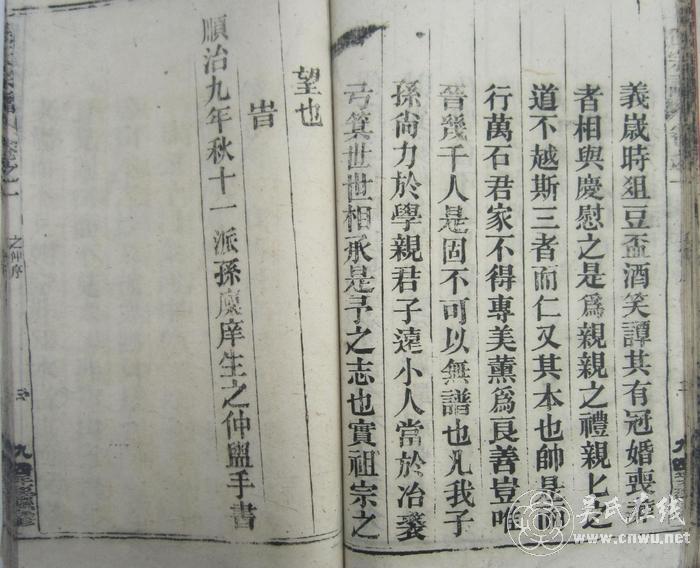 義歲時狙豆盃酒笑譚其有冠婚喪
者相與慶慰之是爲親親之禮親上之
道不越斯三者而仁又其本也帥是而
行萬石君家不得專美薰爲良善豈唯
晉幾千人是固不可以無譜也凡我子
孫尙力於學親君子遠小人當於冶裘
弓箕世世相承是予之志也實祖宗之
望也
旹
順治九年秋十一派孫廩庠生之仲盥手書
之仲序
吴氏在线
www.cnwu.net